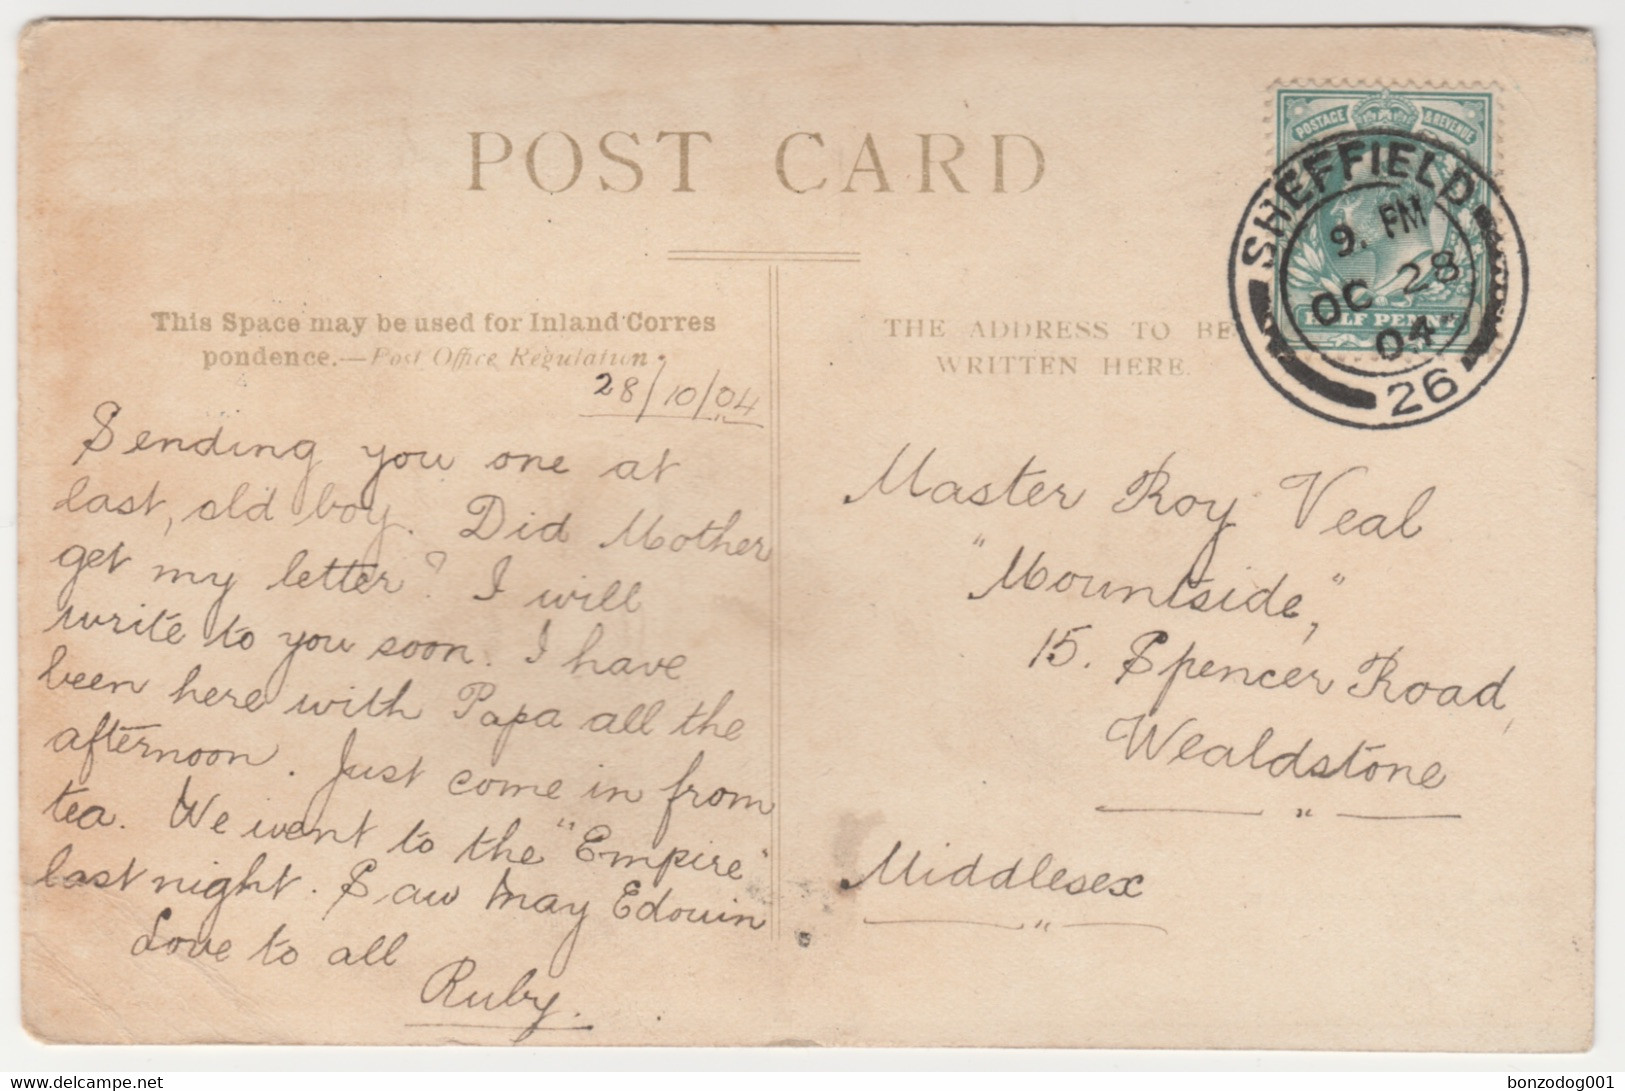 POST CARD
This Space may be used for Inland Corres
pondence.—Post Office Regulation.
28/10/04
Sending you one at
last, old boy. Did Mother
get my letter? I will
write to you soon. I have
been here with Papa all the
afternoon. Just come in from
tea. We went to the "Empire"
last night. Saw May Edouin
Love to all
Ruby.
THE ADDRESS TO BE
WRITTEN HERE.
POSTAGE & REVENUE
HALF PENNY
SHEFFIELD
9. PM
OC 28
04
26
Master Roy Veal
"Mountside,"
15. Spencer Road,
Wealdstone
Middlesex
delcampe.net
bonzodog001